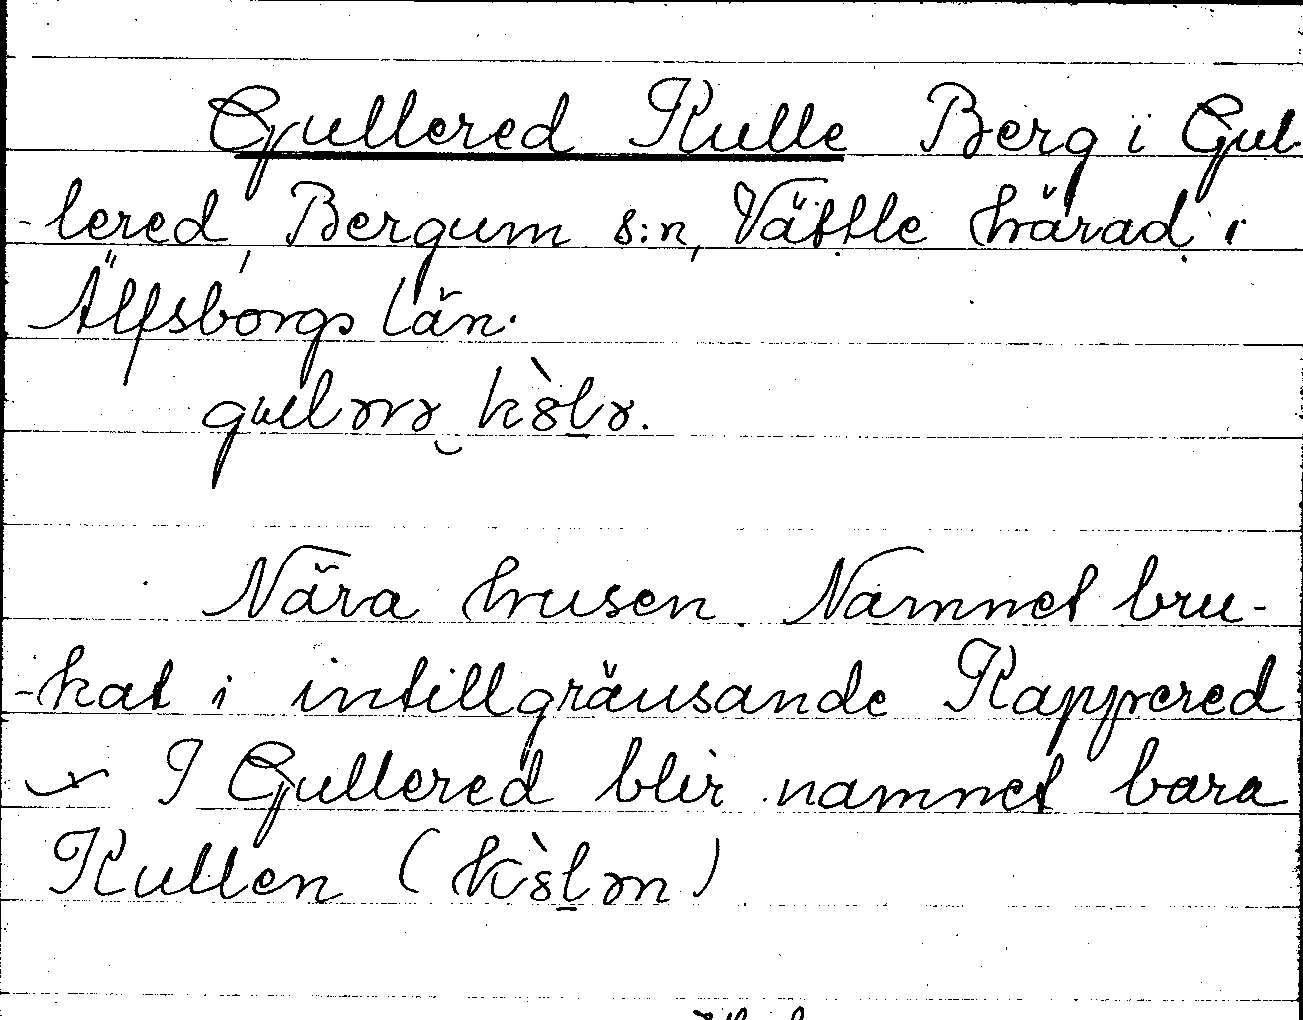 Gullered Kulle Berg i Gul-
-lered, Bergum s:n, Vättle härad i
Älfsborgs län.
Nära husen. Namnet bru-
-kat i intillgränsande Rappered
I Gullered blir namnet bara
Kullen (